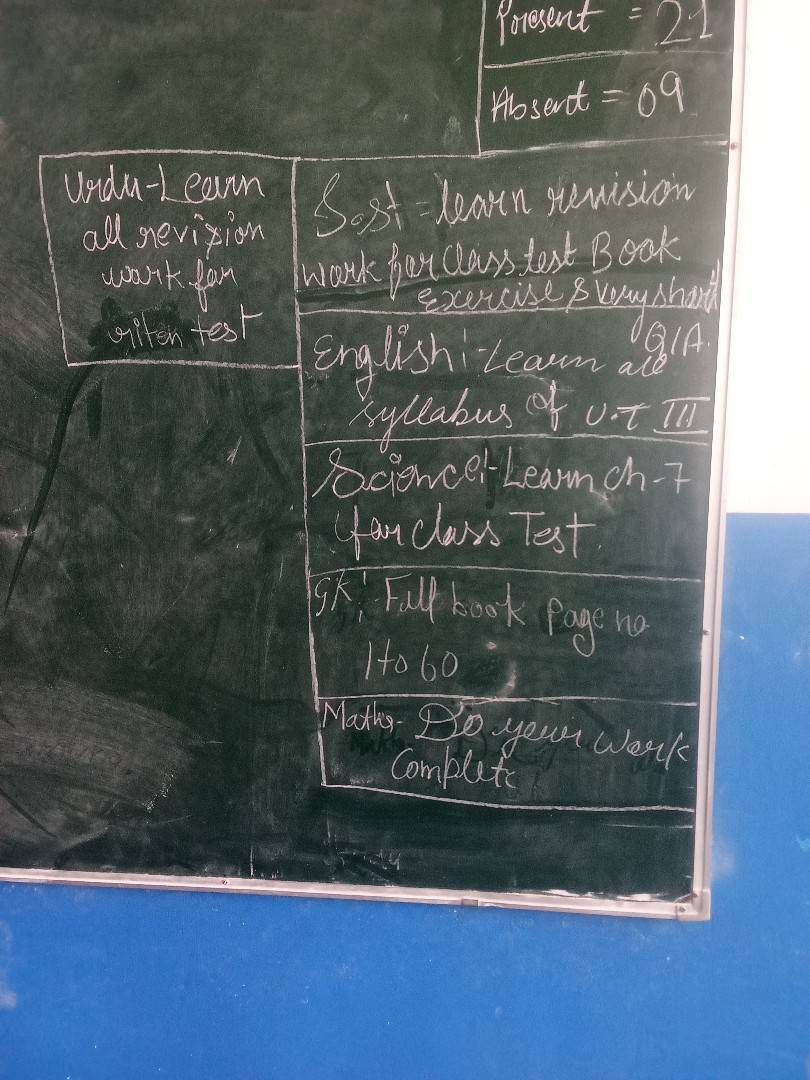 Present = 21
Absent = 09
Urdu-Learn
all revision
work for
writen test
S.st = learn revision
work for class test Book
exercise & very short
Q/A.
English:- Learn all
syllabus of U.T III
Science:- Learn ch-7
for class Test.
GK:- Full book Page no
1 to 60
Maths- Do your work
Complete